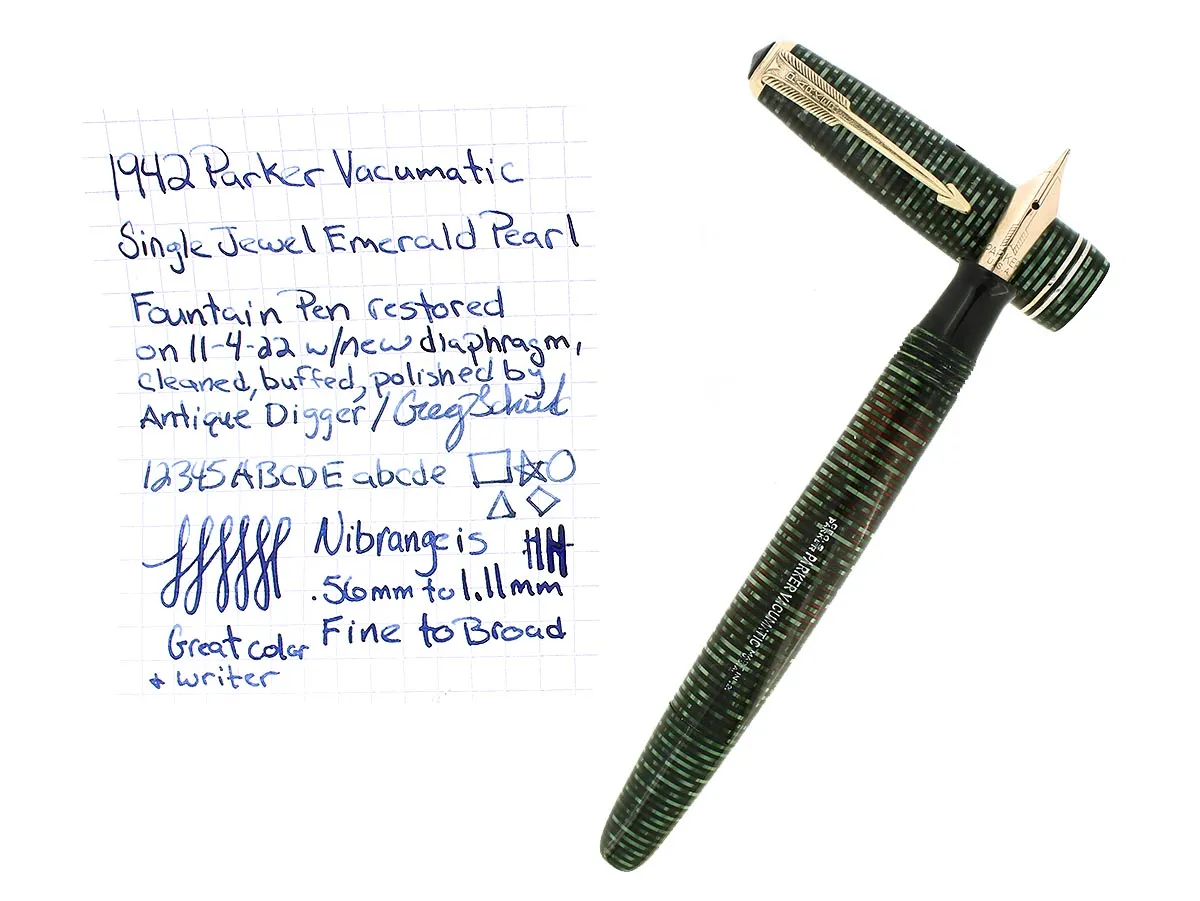 1942 Parker Vacumatic
Single Jewel Emerald Pearl
Fountain Pen restored
on 11-4-22 w/new diaphragm,
cleaned, buffed, polished by
Antique Digger / Greg
12345 ABCDE abcde
Nib range is
.56mm to 1.11mm
Fine to Broad
Great color
+ writer
PARKER
PARKER
GEO. S.
PARKER
PARKER VACUMATIC